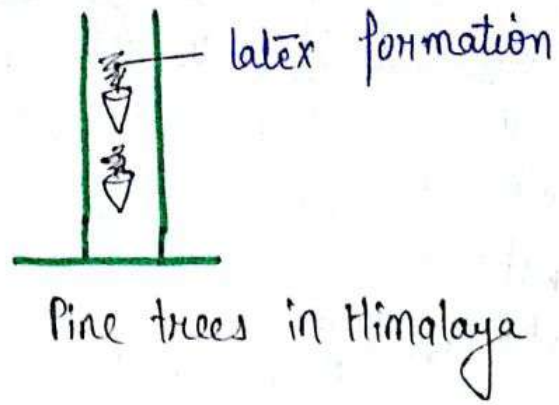 latex formation
Pine trees in Himalaya